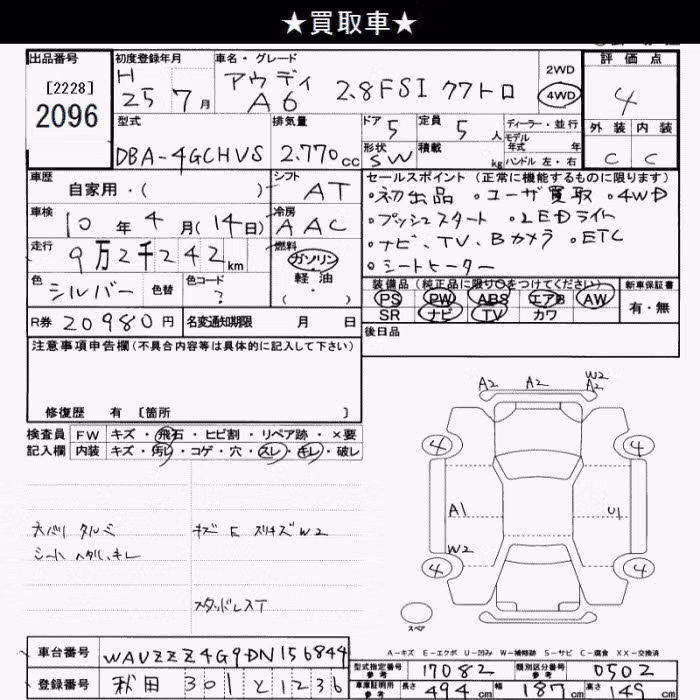 ★買取車★
出品番号
[2228]
2096
初度登録年月
H
25 7月
車名・グレード
アウディ
A6 2.8FSI クワトロ
2WD
4WD
評価点
4
外装 内装
C C
型式
DBA-4GCHVS
排気量
2.770cc
ドア
5
定員
5人
形状
SW
積載
kg
ディーラー・並行
モデル
年式 年
ハンドル 左・右
車歴
自家用・( )
シフト
AT
車検
10年4月(14日)
冷房
AAC
走行
9万2千242km
燃料
ガソリン
軽油
( ・ )
色
シルバー
色替
色コード
?
R券 20980円
名変通知期限 月 日
セールスポイント(正常に機能するものに限ります)
・初出品 ・ユーザ買取 ・4WD
・プッシュスタート ・LEDライト
・ナビ、TV、Bカメラ ・ETC
・シートヒーター
装備品(純正品に限り○をつけてください)
新車保証書
PS PW ABS エアB AW
SR ナビ TV カワ
有・無
後日品
注意事項申告欄(不具合内容等は具体的に記入して下さい)
修復歴 有 [箇所 ]
検査員 FW キズ・飛石・ヒビ割・リペア跡・×要
記入欄 内装 キズ・汚レ・コゲ・穴・スレ・キレ・破レ
天バリ タルミ
シートヘタリ、キレ
キズ E スリキズW2
スタッドレスT
A2 A2 W2
A2
4 4
A1 U1
W2
4 4
スペア
A-キズ E-エクボ U-凹み W-補修跡 S-サビ C-腐食 XX-交換済
車台番号 WAUZZZ4G9DN156844
登録番号 秋田 301 と 1236
型式指定番号
参考
17082
類別区分番号
参考
0502
車庫証明用
参考
長さ 494cm 幅 187cm 高さ
cm